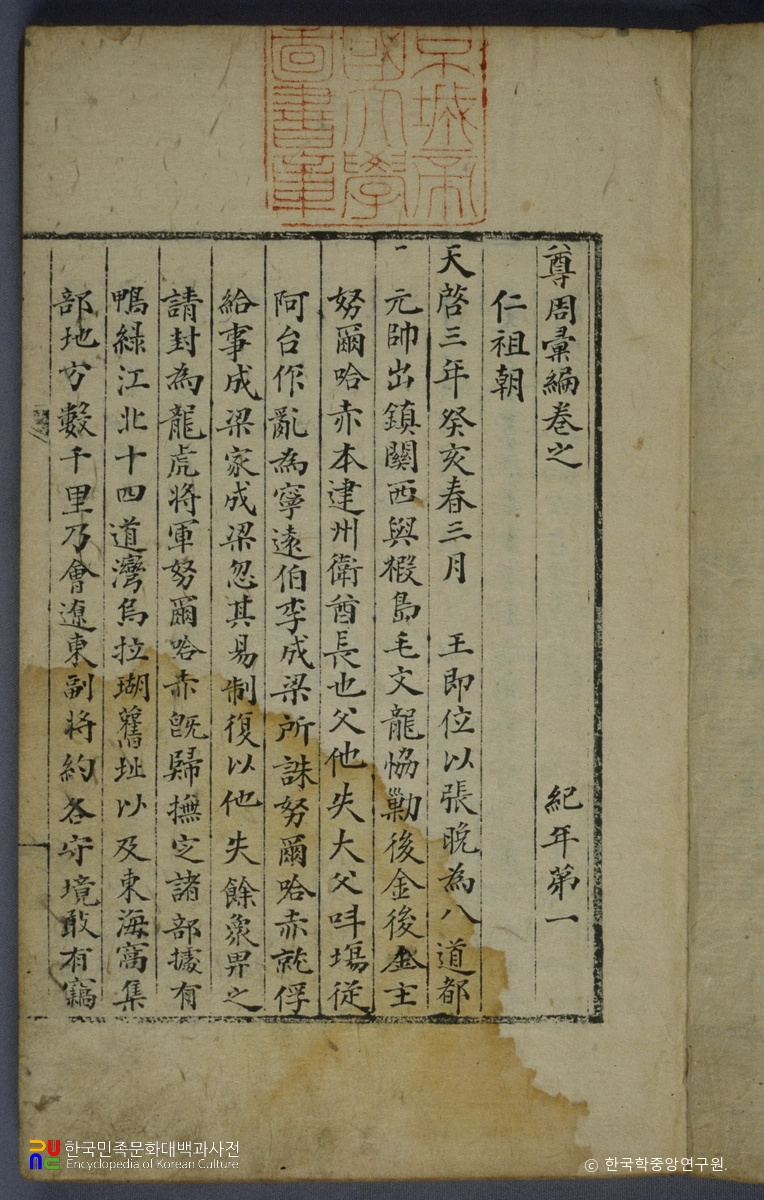 京城帝
國大學
圖書章
尊周彙編卷之 紀年第一
仁祖朝
天啓三年癸亥春三月 王即位以張晚為八道都
元帥出鎮關西與椵島毛文龍恊勦後金後金主
努爾哈赤本建州衛酋長也父他失大父呌塲従
阿台作亂為寧遠伯李成梁所誅努爾哈赤就俘
給事成梁家成梁忽其易制復以他失餘衆畀之
請封為龍虎將軍努爾哈赤旣歸撫定諸部據有
鴨綠江北十四道灣烏拉瑚舊址以及東海窩集
部地方數千里乃會遼東副將約各守境敢有竊
한국민족문화대백과사전
Encyclopedia of Korean Culture
© 한국학중앙연구원.